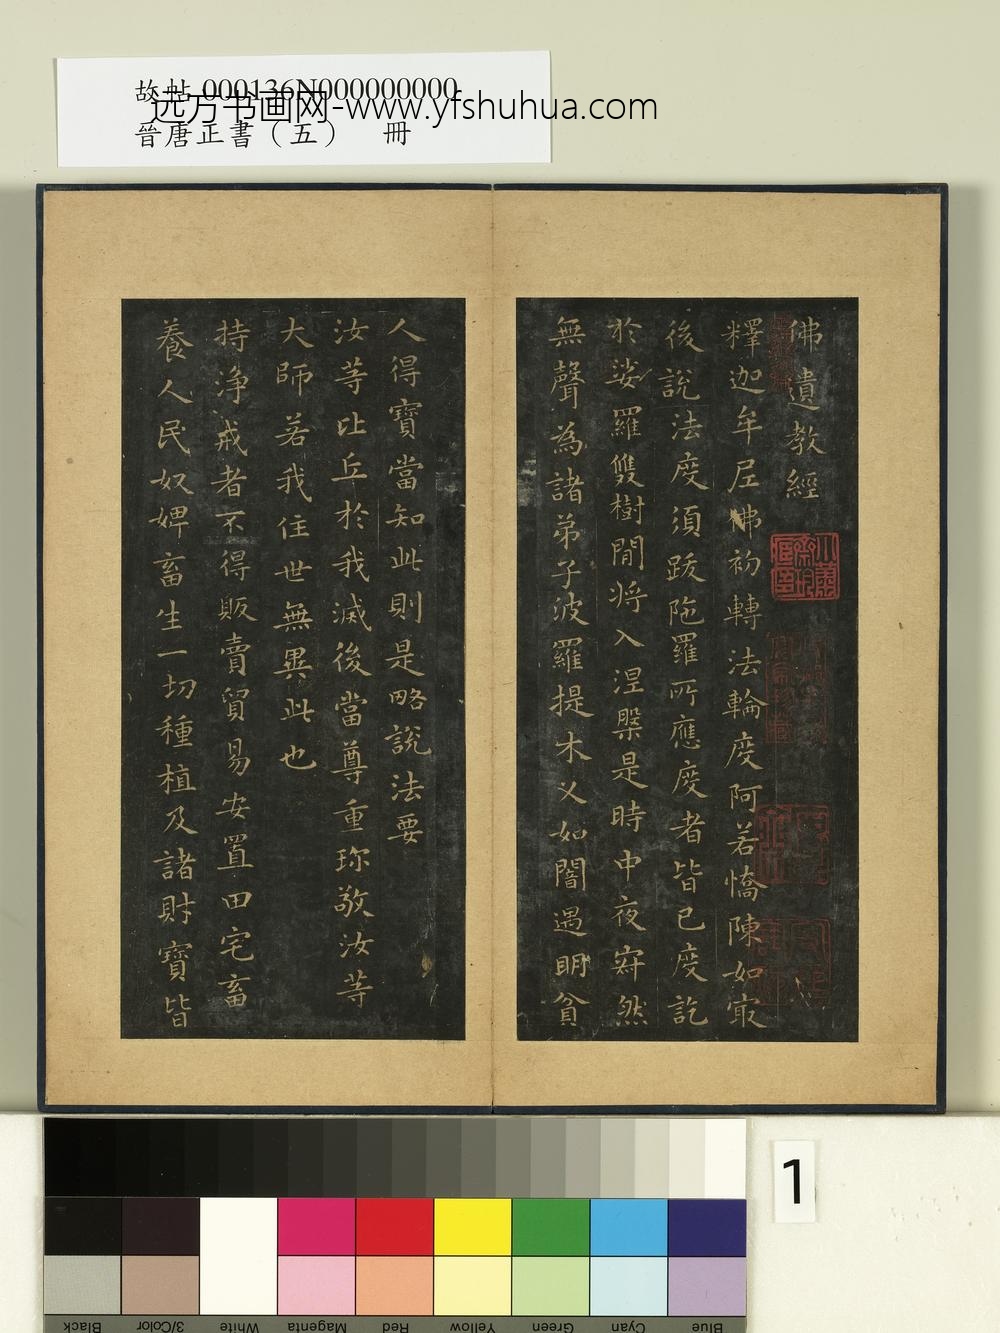 故帖 000136N000000000
远方书画网-www.yfshuhua.com
晉唐正書（五） 冊
佛遺教經
釋迦牟尼佛初轉法輪度阿若憍陳如寂
後說法度須跋陁羅所應度者皆已度訖
於娑羅雙樹閒將入涅槃是時中夜寂然
無聲為諸弟子波羅提木义如闇遇明貧
人得寶當知此則是略說法要
汝等比丘於我滅後當尊重珎敬汝等
大師若我住世無異此也
持淨戒者不得販賣貿易安置田宅畜
養人民奴婢畜生一切種植及諸財寶皆
1
Black
3/Color
White
Magenta
Red
Yellow
Green
Cyan
Blue